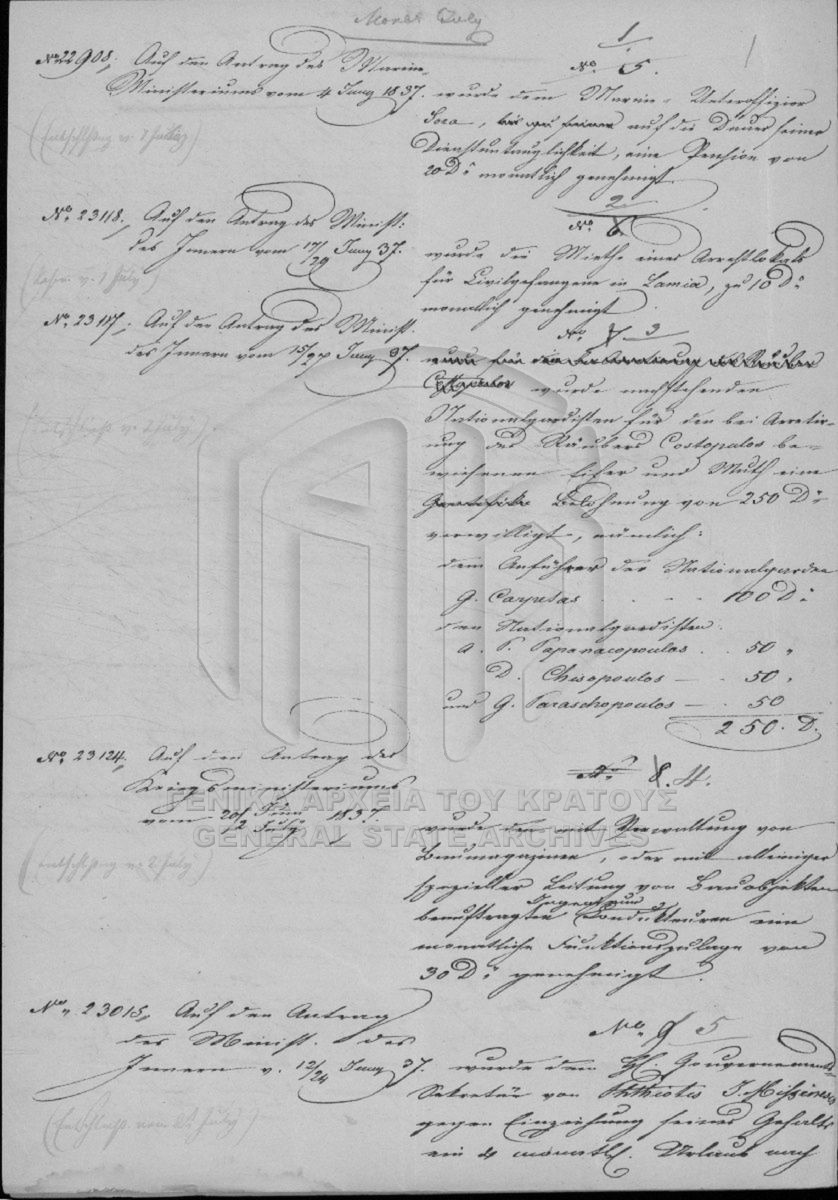 Monat July
1
1.
No 5.
No 22908, Auf den Antrag des Marine-
Ministeriums vom 4 Juny 1837. wurde dem Marine-Unteroffizier
(Entschlßg v. July)
auf die Dauer seiner
Dienstuntauglichkeit, eine Pension von
20 D. monatlich genehmigt
2
No 6
No 23118, Auf den Antrag des Minist:
des Innern vom 17/29 Juny 37.
wurde die Miethe eines Arrestlokals
für Civilgefangene in Lamia, zu 10 D.
monatlich genehmigt.
(v. 1 July)
No 3
No 23117, Auf den Antrag des Minist.
des Innern vom 15/27 Juny 37.
wurde nachstehenden
Nationalgardisten für den bei Arretir-
ung des Räubers Costopulos be-
wiesenen Eifer und Muth eine
Belohnung von 250 D.
verwilligt, nämlich:
dem Anführer der Nationalgarden
G. Carpetas . - - 100 D.
den Nationalgardisten.
a. P. Papanacopoulos . . 50 "
D. Chisopoulos — . 50 "
und G. Paraschopoulos — . 50
250. D.
(v. 2 July)
No 8. 4.
No 23124, Auf den Antrag des
Kriegsministeriums
vom 20 Juni/2 July 1837.
wurde den mit Verwaltung von
Baumagazinen, oder mit alleiniger
spezieller Leitung von Bauobjekten
beauftragten Condukteuren eine
monatliche Funktionszulage von
30 D. genehmigt.
(Entschlßg v. 2 July)
ΓΕΝΙΚΑ ΑΡΧΕΙΑ ΤΟΥ ΚΡΑΤΟΥΣ
GENERAL STATE ARCHIVES
No 5
No 23015, Auf den Antrag
des Minist. des
Innern v. 12/24 Juny 37. wurde dem Gouvernements-
Sekretär von Phthiotis
gegen Einziehung seines Gehalts
ein 4 monatl. Urlaub nach
(Entschließ vom July)